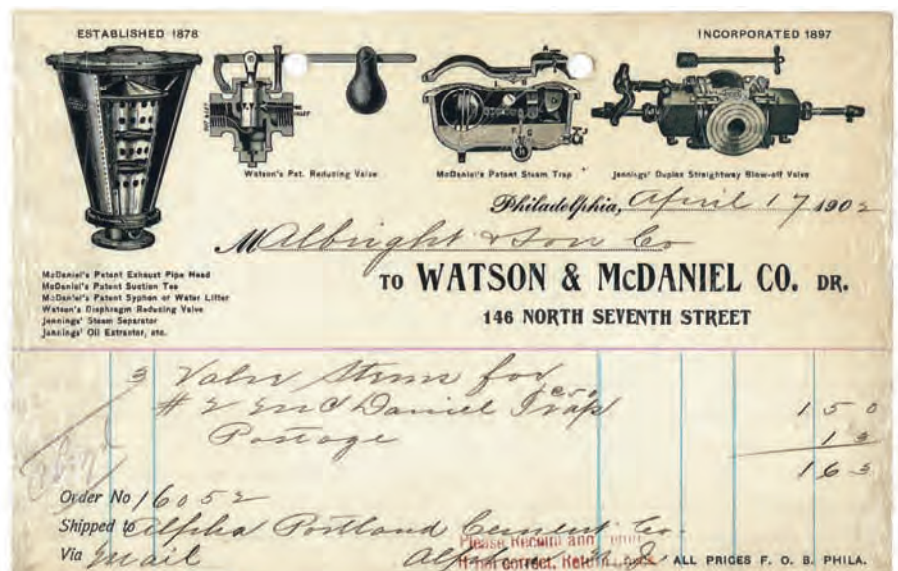 ESTABLISHED 1878
INCORPORATED 1897
OUTLET
INLET
Watson's Pat. Reducing Valve
McDaniel's Patent Steam Trap
Jennings' Duplex Straightway Blow-off Valve
Philadelphia, April 17 1902
M Albright & Son Co
TO WATSON & McDANIEL CO. DR.
146 NORTH SEVENTH STREET
McDaniel's Patent Exhaust Pipe Head
McDaniel's Patent Suction Tee
McDaniel's Patent Syphon or Water Lifter
Watson's Diaphragm Reducing Valve
Jennings' Steam Separator
Jennings' Oil Extractor, etc.
3 Valve Stems for
# 2 McDaniel Trap c50 1 50
Postage 1 3
1 6 3
Order No 16052
Shipped to Alpha Portland Cement Co.
Please Receipt and
Via Mail Alpha N. J. ALL PRICES F. O. B. PHILA.
If not correct, Return